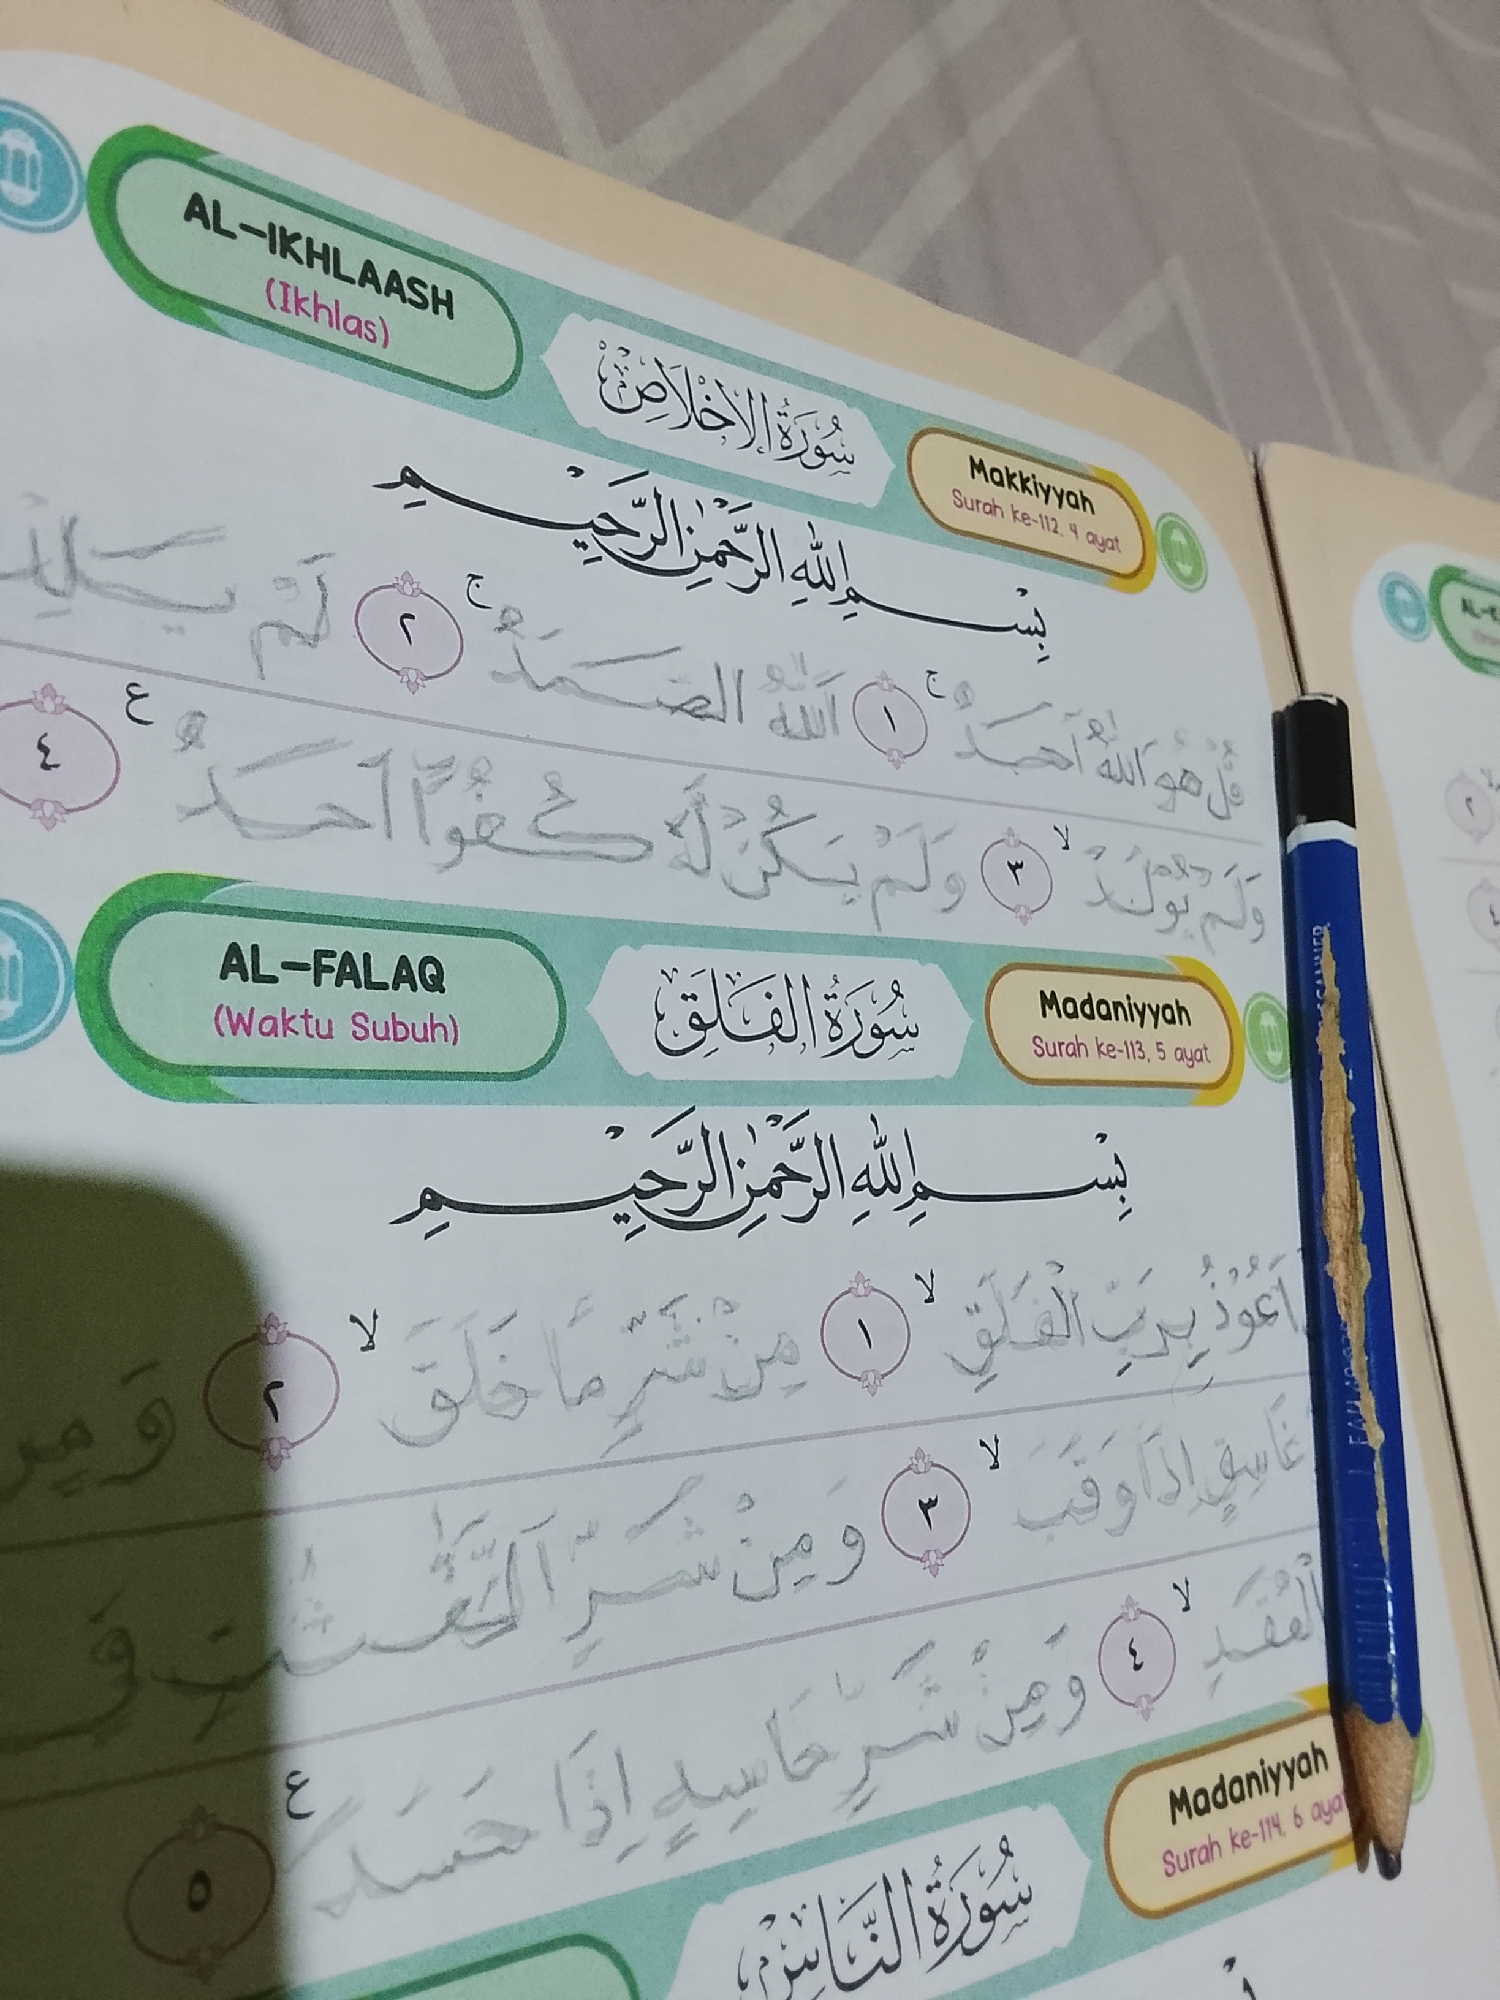 AL-IKHLAASH
(Ikhlas)
سُورَةُ الْاِخْلَاصِ
Makkiyyah
Surah ke-112, 4 ayat
بِسْمِ اللّٰهِ الرَّحْمٰنِ الرَّحِيْمِ
قُلْ هُوَ اللّٰهُ اَحَدٌ ج ١ اَللّٰهُ الصَّمَدُ ج ٢ لَمْ يَلِدْ
وَلَمْ يُوْلَدْ لا ٣ وَلَمْ يَكُنْ لَّهٗ كُفُوًا اَحَدٌ ع ٤
AL-FALAQ
(Waktu Subuh)
سُورَةُ الْفَلَقِ
Madaniyyah
Surah ke-113, 5 ayat
بِسْمِ اللّٰهِ الرَّحْمٰنِ الرَّحِيْمِ
اَعُوْذُ بِرَبِّ الْفَلَقِ لا ١ مِنْ شَرِّ مَا خَلَقَ لا ٢ وَمِنْ
غَاسِقٍ اِذَا وَقَبَ لا ٣ وَمِنْ شَرِّ النَّفّٰثٰتِ فِى
الْعُقَدِ لا ٤ وَمِنْ شَرِّ حَاسِدٍ اِذَا حَسَدَ ع ٥
سُورَةُ النَّاسِ
Madaniyyah
Surah ke-114, 6 ayat